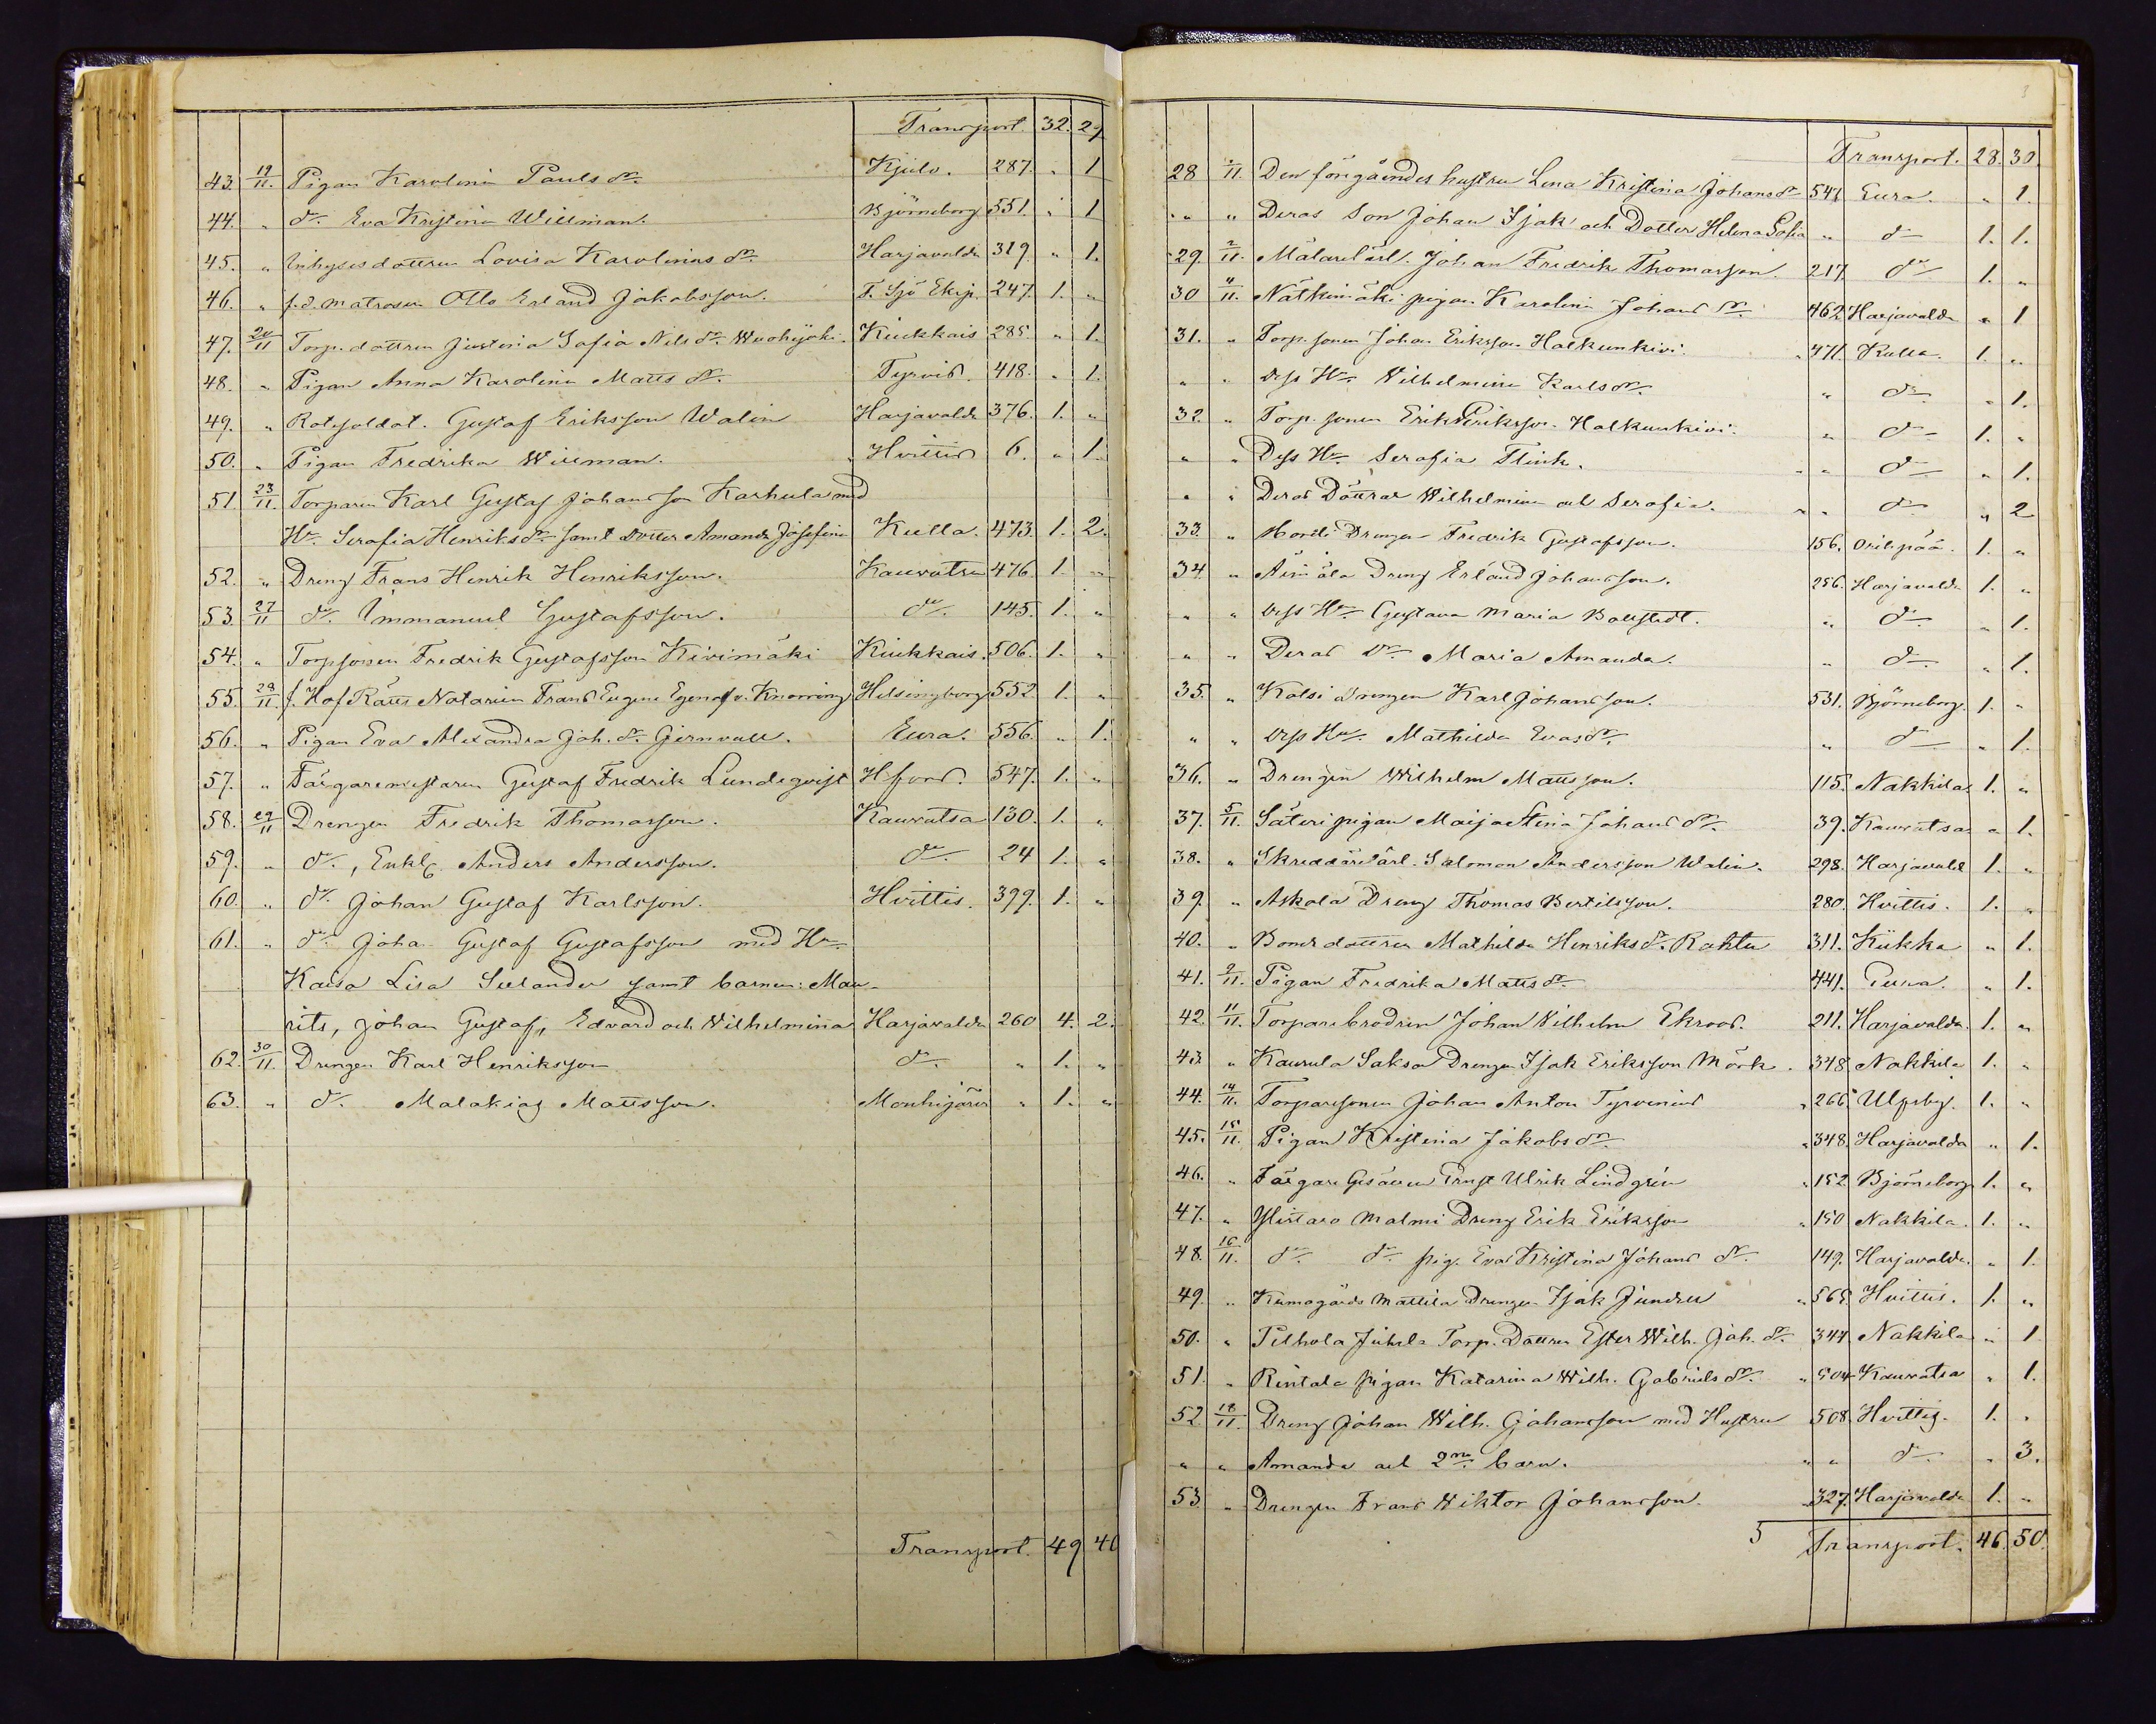 Transport. 32. 29
43. 19/11. Pigan Karolina Pauls dr. Kjulo. 287. „ 1
44. „ do. Eva Kristina Willman. Björneborg 551. „ 1
45. „ Inhysesdottren Lovisa Karolinas dr. Harjavalda 319. „ 1.
46. „ f.d. matrosen Otto Erland Jakobsson. F. Sjö Ekip. 247. 1. „
47. 20/11 Torp. dottren Justina Sofia Nils dr. Wuohijoki. Kiukkais 285. „ 1.
48. „ Pigan Anna Karolina Matts dr. Tyrvis. 418. „ 1.
49. „ Rotesoldat. Gustaf Eriksson Walin Harjavalda 376. 1. „
50. „ Pigan Fredrika Willman. Hvittis 6. „ 1.
51. 23/11. Torparen Karl Gustaf Johansson Karhula med
Hu. Serafia Henriksdr. samt dotter Amanda Josefina Kulla. 473. 1. 2.
52. „ Dreng Frans Henrik Henriksson. Kauvatsa 476. 1. „
53. 27/11 do. Immanuel Gustafsson. do. 145. 1. „
54. „ Torpsonen Fredrik Gustafsson Kivimäki Kiukkais. 506. 1. „
55. 29/11. f. Hof Rätts Notarien Frans Eugene Egenolf v. Knorring Helsingborg 552. 1. „
56. „ Pigan Eva Alexandra Joh. dr. Gernvall. Eura. 556. „ 1.
57. „ Färgaremästaren Gustaf Fredrik Lundeqvist H.fors. 547. 1. „
58. 29/11 Drengen Fredrik Thomasson. Kauvatsa 130. 1. „
59. „ do., Enkl. Anders Andersson. do. 24 1. „
60. „ do. Johan Gustaf Karlsson. Hvittis. 399. 1. „
61. „ do. Joha Gustaf Gustafsson med Hu.
Kaisa Lisa Seelander samt barnen: Mau-
rits, Johan Gustaf, Edvard och Wilhelmina Harjavalda 260 4. 2.
62. 30/11. Drengen Karl Henriksson do. „ 1. „
63. „ do. Malakias Mattsson. Mouhijärvi „ 1. „
Transport. 49 40
Transport. 28. 30.
28 „/11. Den föregåendes hustru Lena Kristina Johansdr 548 Eura. „ 1.
„ „ Deras Son Johan Isak och Dotter Helena Sofia „ do 1. 1.
29. 2/11. Mälarelärl. Johan Fredrik Thomasson. 217. do 1. „
30 4/11. Nätkinmäki pigan Karolina Johans dr. 462 Harjavalda „ 1
31. „ Torp. sonen Johan Eriksson Halkeunkivi. „ 471. Kulla. 1. „
„ „ dess Hu. Wilhelmina Karlsdr. „ do „ 1.
32. „ Torp. sonen Erik Eriksson Halkeunkivi. „ do 1. „
„ „ Dess Hu. Serafia Flink. „ do „ 1.
„ „ Deras Döttrar Wilhelmina och Serafia. „ do „ 2
33. „ Drengen Fredrik Gustafsson. 156. Oripää. 1. „
34. „ Äimälä Dreng Erland Johansson. 256. Harjavalda 1. „
„ „ dess Hu. Gustava Maria Bollstedt. „ do „ 1.
„ „ Deras dr. Maria Amanda. „ do „ 1.
35. „ Kolsi Drengen Karl Johansson. 531. Björneborg. 1. „
„ „ dess Hu. Mathilda Evasdr. „ do „ 1.
36. „ Drengen Wilhelm Mattsson. 115. Nakkila 1. „
37. 5/11. Säteri pigan Maija Stina Johans dr. 39. Kauvatsa „ 1.
38. „ Skreddärelärl. Salomon Andersson Walin. 298. Harjavald 1. „
39. „ Askola Dreng Thomas Bertilsson. 280. Hvittis. 1. „
40. „ Bondedottren Mathilda Henriksdr. Rahtu 311. Kiikka „ 1.
41. 9/11. Pigan Fredrika Matts dr. 441. Eura. „ 1.
42. 11/11. Torparebrodren Johan Wilhelm Ekroos. 211. Harjavalda. 1. „
43. „ Kaurula Saksa Drengen Isak Eriksson Mörk. 348 Nakkila 1. „
44. 14/11. Torparesonen Johan Anton Tyrvenius „ 266 Ulfsby. 1. „
45. 15/11. Pigan Kristina Jakobs dr „ 348 Harjavalda „ 1.
46. „ Färgare Gesällen Ernst Ulrik Lindgrén „ 152. Björneborg 1. „
47. „ Ylistaro Malmi Dreng Erik Eriksson „ 150 Nakkila. 1. „
48. 16/11. do. do. pig. Eva Kristina Johans dr. 149. Harjavalda. „ 1.
49. „ Kumogårds Mattila Drengen Isak „ 565 Hvittis. 1. „
50. „ Pelhola Juhela Torp. Dottren Ester Wilh. Joh. dr. 344. Nakkila „ 1
51. „ Rintala pigan Katarina Wilh. Gabriels dr. „ 504 Kauvatsa „ 1.
52 18/11. Dreng Johan Wilh. Johansson med Hustru 508. Hvittis. 1. „
„ „ Amanda och 2ne barn. „ „ do „ 3.
53. „ Drengen Frans Wiktor Johansson. „ 327. Harjavalda 1. „
Transport. 46. 50.